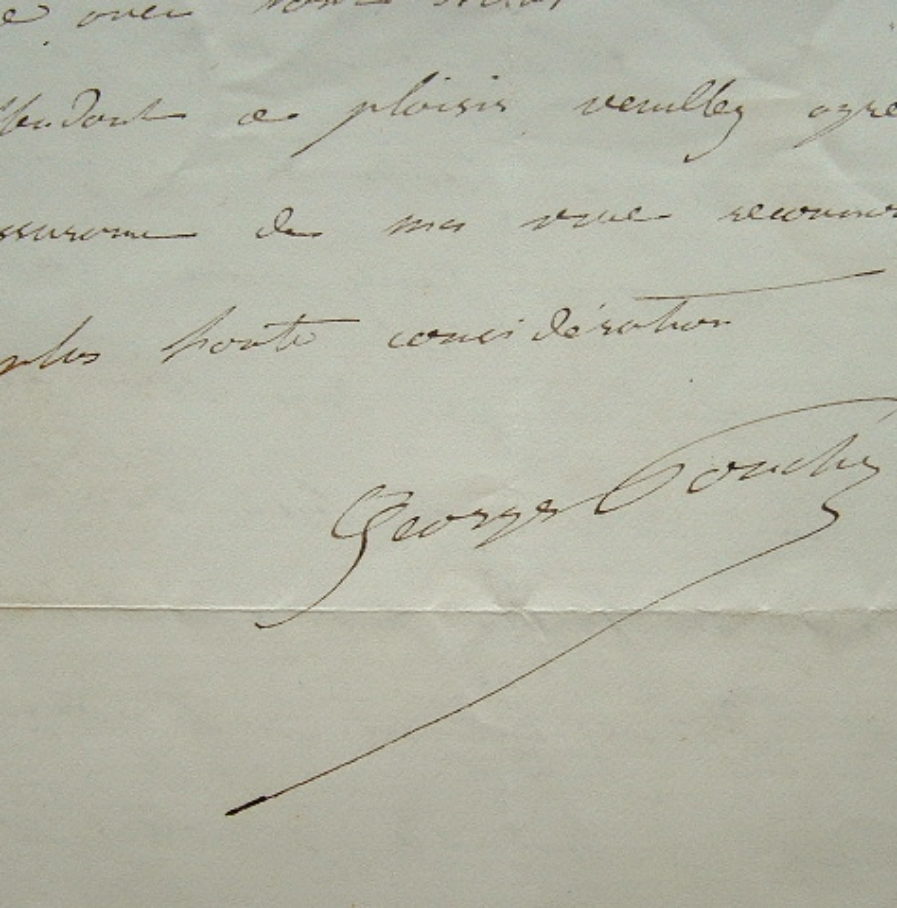 e avec votre
ttendant ce plaisir veuillez agré
ssurance de ma vive reconnai
plus haute considération
Georges Pouchet